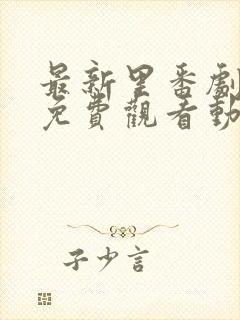 最新里番劇
免費觀看動
子少言